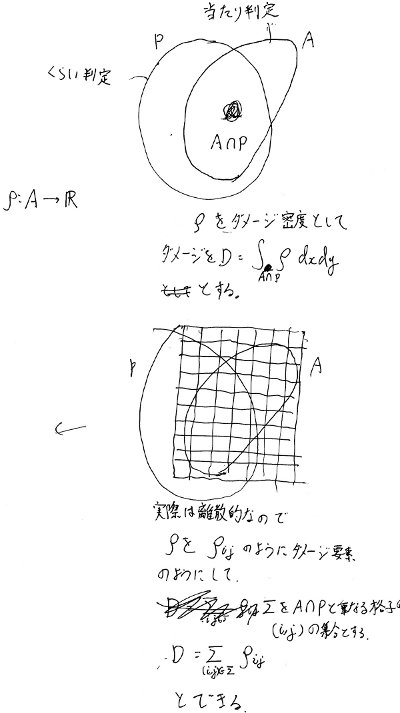 当たり判定
P
A
くらい判定
A∩P
ρ: A → ℝ
ρをダメージ密度として
ダメージをD = ∫_{A∩P} ρ dxdy
とする。
P
A
実際は離散的なので
ρをρij のようにダメージ要素
のようにして、
ΣをA∩Pと重なる格子の
(i,j)の集合とする。
D = Σ_{(i,j)∈Σ} ρij
とできる。